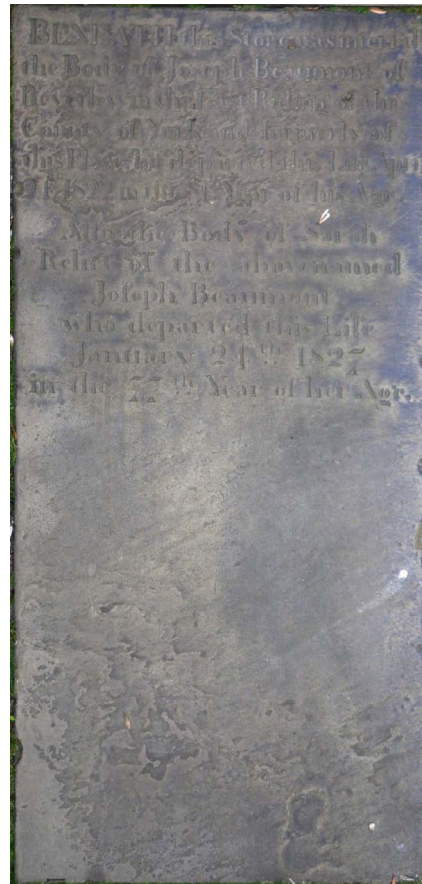 BENEATH this Stone was interr'd
the Body of Joseph Beaumont of
Beverley in the East Riding of the
County of York and formerly of
this Place, he departed this Life
1822 in the Year of his Age.
Also the Body of Sarah
Relict of the abovenamed
Joseph Beaumont
who departed this Life
January 24th 1827
in the 77th Year of her Age.